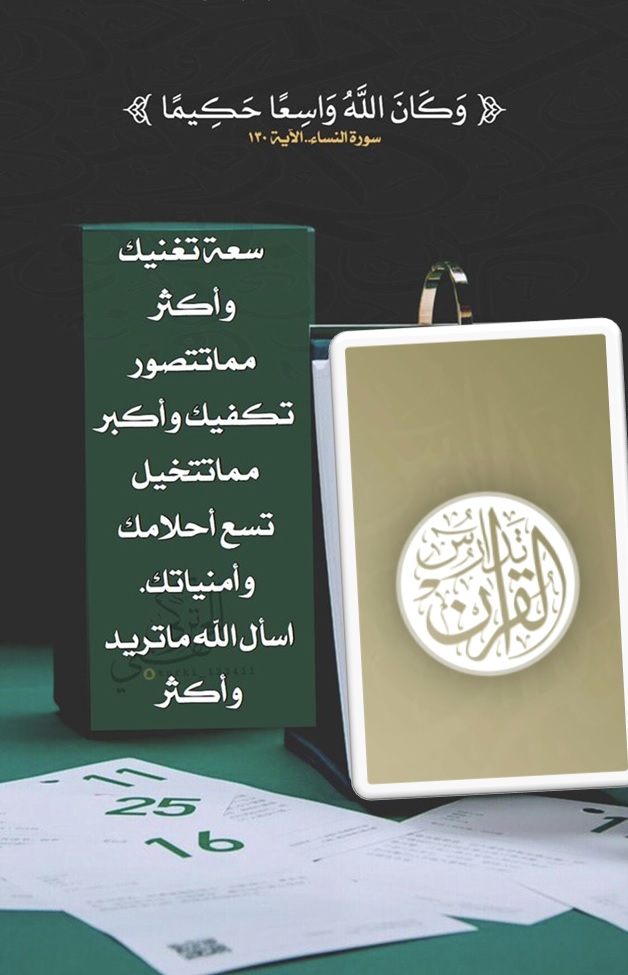 ﴿ وَكَانَ اللَّهُ وَاسِعًا حَكِيمًا ﴾
سورة النساء..الآية ١٣٠
سعة تغنيك
وأكثر
مماتتصور
تكفيك وأكبر
مماتتخيل
تسع أحلامك
وأمنياتك.
اسأل الله ماتريد
وأكثر
تدارس
القرآن
11
25
16